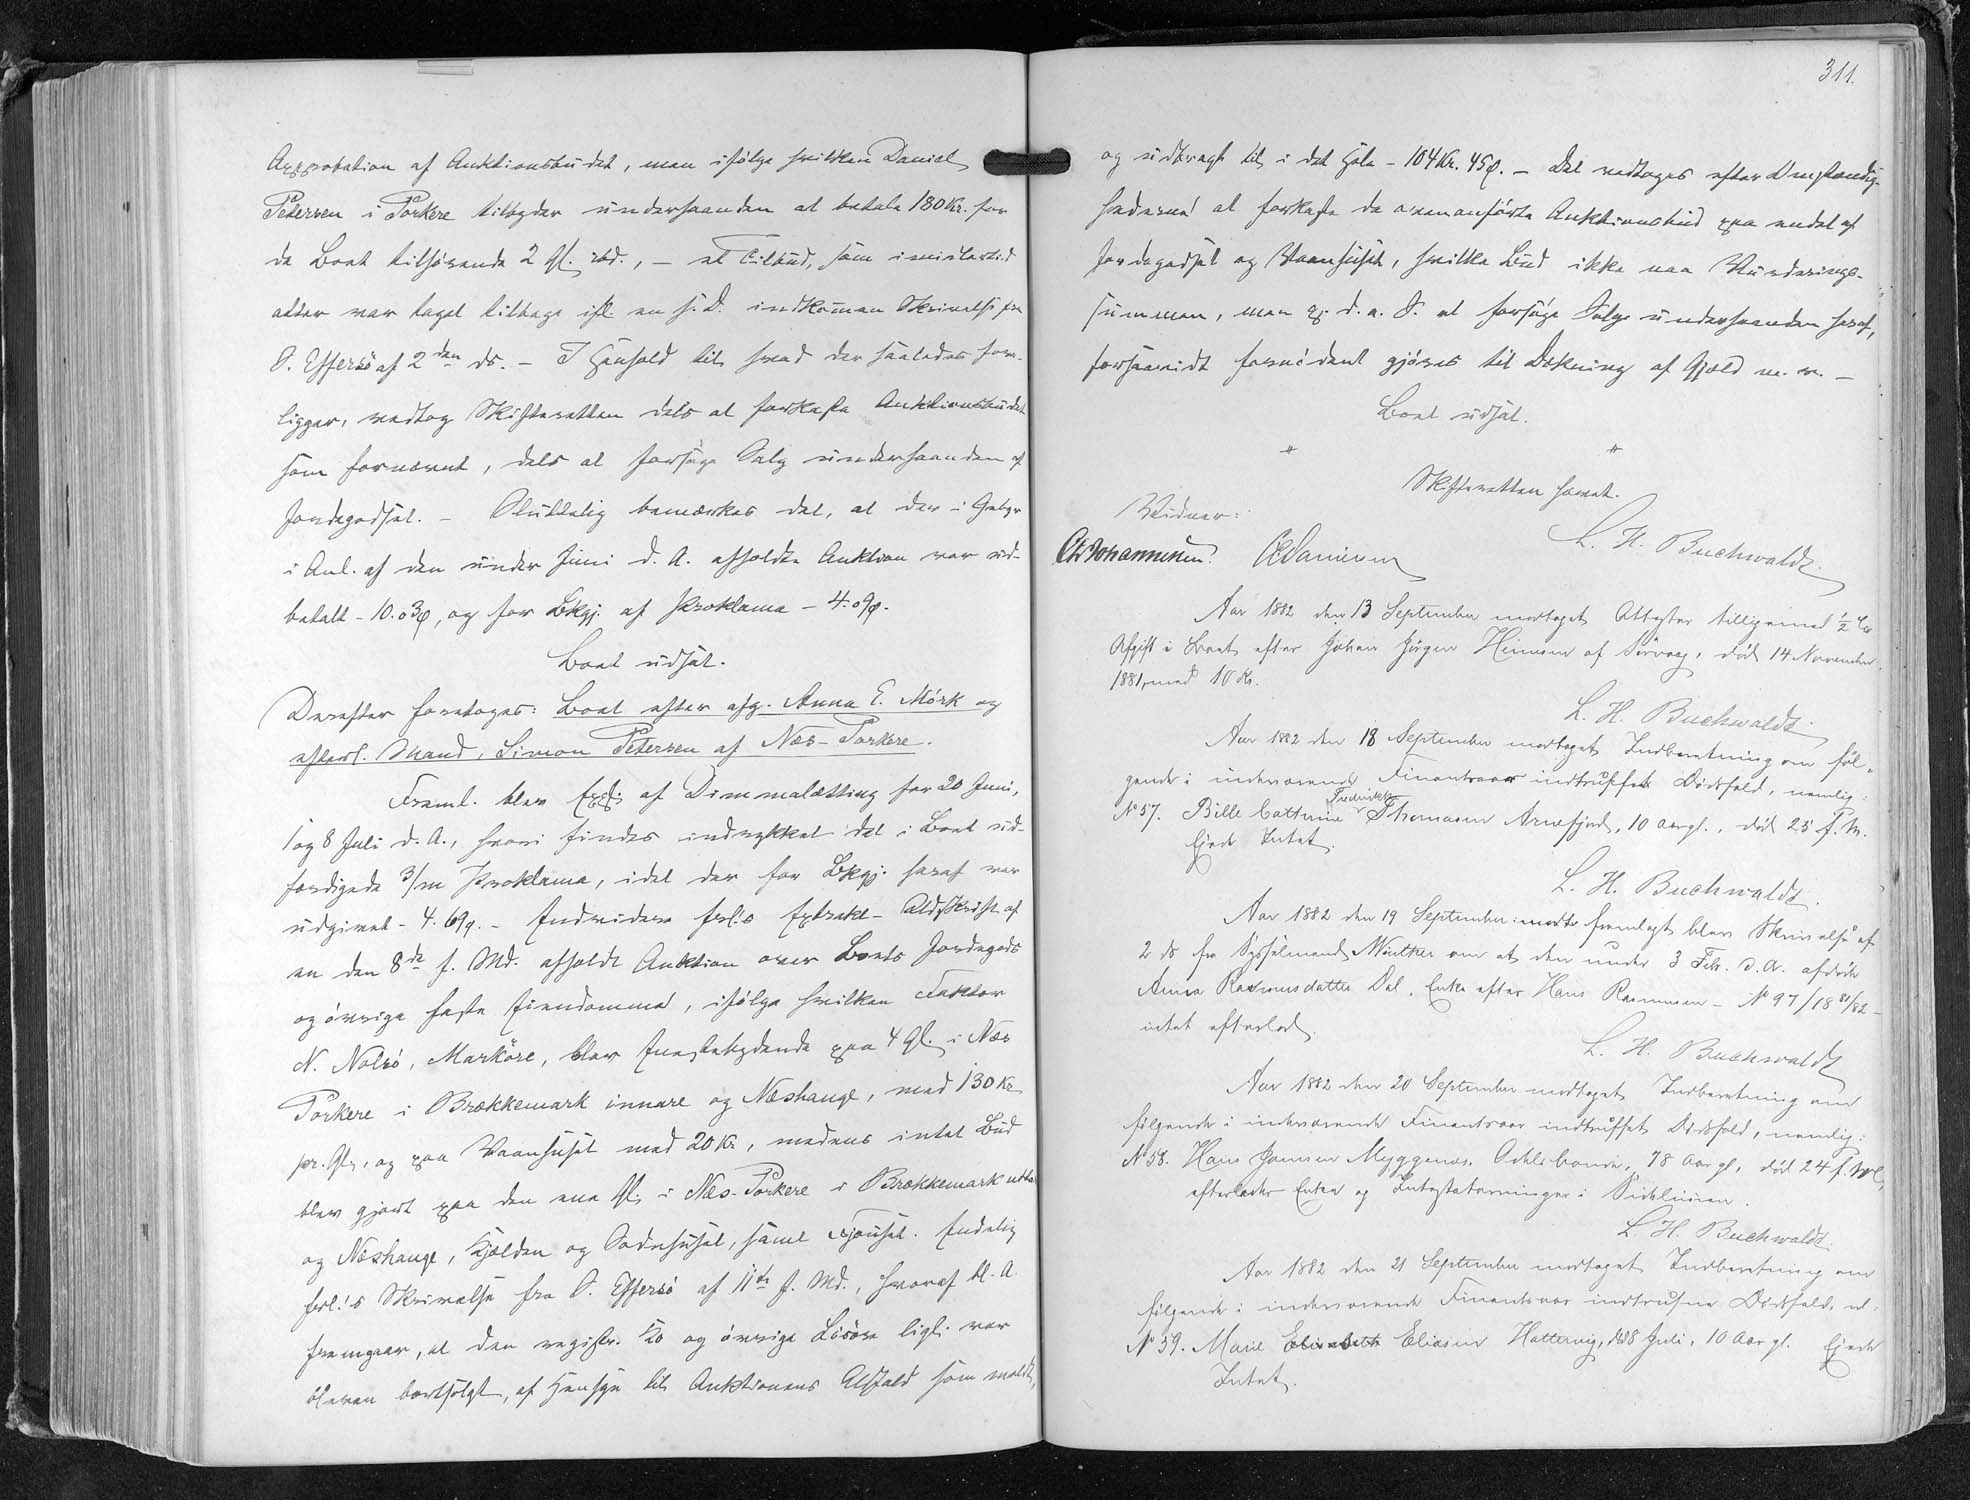 Approbation af Auktionsbudet, men ifølge hvilken Daniel
Petersen i Porkere tilbyder underhaanden at betale 180 Kr. for
de Boet tilhørende 2 Gl. ibd., — et Tilbud, som imidlertid
atter var taget tilbage ifl. en s. D. indkommen Skrivelse fra
O. Effersö af 2den ds. — I Henhold til hvad der saaledes fore-
ligger, vedtog Skifteretten dels at forkaste Auktionsbudet
som fornævnt, dels at forsøge Salg underhaanden af
Jordegodset. — Sluttelig bemærkes det, at der i Gebyr
i Anl. af den under Juni d. A. afholdte Auktion var ud-
betalt - 10.03ø, og for Bkgj. af Proklama - 4.09ø.
Boet udsat.
Derefter foretoges: Boet efter afg. Anna E. Mörk og
efterl. Mand, Simon Petersen af Næs-Porkere.
Freml. blev Expl. af Dimmalætting for 20 Juni,
1 og 8 Juli d. A., hvori findes indrykket det i Boet ud-
færdigede 3/m Proklama, idet der for Bkgj. heraf var
udgivet - 4.69ø. - Endvidere frl.s Extrakt-Udskrift af
en den 8de f. Md. afholdt Auktion over Boets Jordegods
og øvrige faste Eiendomme, ifølge hvilken Faktor
N. Nolsö, Marköre, blev høistbydende paa 4 Gl. i Næs
Porkere i Brækkemark innare og Næshauge, med 130 Kr.
pr. Gl., og paa Vaanhuset med 20 Kr., medens intet Bud
blev gjort paa den ene Gl. i Næs-Porkere i Brækkemark utta
og Næshauge, Kjælden og Sodnhuset, samt Fjøuset. Endelig
frl.s Skrivelse fra O. Effersö af 11te f. Md., hvoraf bl. A.
fremgaar, at den registr. Ko og øvrige Løsøre ligl. var
bleven bortsolgt, af Hensyn til Auktionens Udfald som meldt,
311.
og udbragt til i det Hele - 104 Kr. 45ø. — Det vedtoges efter Omstændig-
hederne at forkaste de ovenanførte Auktionsbud paa endel af
Jordegodset og Vaanhuset, hvilke Bud ikke naa Vurderings-
summen, men d. a. S. at forsøge Salg underhaanden heraf,
forsaavidt fornødent gjøres til Dekning af Gjæld m. v. —
Boet udsat.
" "
Skifteretten hævet.
Vidner:
L. H. Buchwaldt.
Chr Johannesen. Danielsen
Aar 1882 den 13 September modtaget Attester tilligemed ½ %
Afgift i Boet efter Johan Jørgen Heinesen af Sörvaag, død 14 November
1881, med 10 Kr.
L. H. Buchwaldt.
Aar 1882 den 18 September modtaget Indberetning om føl-
gende i indeværende Finantsaar indtrufket Dødsfald, nemlig:
Fredrikke
No 57. Bille Cathrine Thomasen Arnefjord, 10 Aar gl., død 25 f. M.
Ejede Intet.
L. H. Buchwaldt.
Aar 1882 den 19 September modt. fremlagt blev Skrivelse af
2 ds fra Sysselmand Müller om at den under 3 Febr. d. A. afdøde
Anna Rasmusdatter Dal, Enke efter Hans Rasmussen - No 97/18 81/82 -
intet efterlod.
L. H. Buchwaldt
Aar 1882 den 20 September modtaget Indberetning om
følgende i indeværende Finantsaar indtruffet Dødsfald, nemlig:
No 58. Hans Joensen Myggenæs, Odelsbonde, 78 Aar gl., død 24 f. M.,
efterlader Enke og Intestatarvinger i Sidelinien.
L. H. Buchwaldt.
Aar 1882 den 21 September modtaget Indberetning om
følgende i indeværende Finantsaar indtrufne Dødsfald, nl:
No 59. Marie Elisabeth Eliasen Hattervig, død 8 Juli, 10 Aar gl. Ejede
Intet.